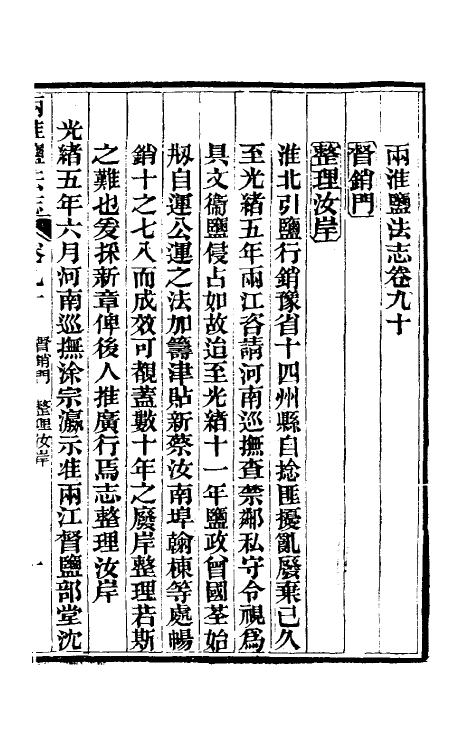 兩淮鹽法志卷九十
督銷門
整理汝岸
淮北引鹽行銷豫省十四州縣自捻匪擾亂廢棄已久
至光緒五年兩江咨請河南巡撫查禁鄰私守令視爲
具文衞鹽侵占如故迨至光緒十一年鹽政曾國荃始
剏自運公運之法加籌津貼新蔡汝南埠翰棟等處暢
銷十之七八而成效可覩蓋數十年之廢岸整理若斯
之難也爰採新章俾後人推廣行焉志整理汝岸
光緒五年六月河南巡撫涂宗瀛示准兩江督鹽部堂沈
兩淮鹽法志 卷九十 督銷門 整理汝岸 一